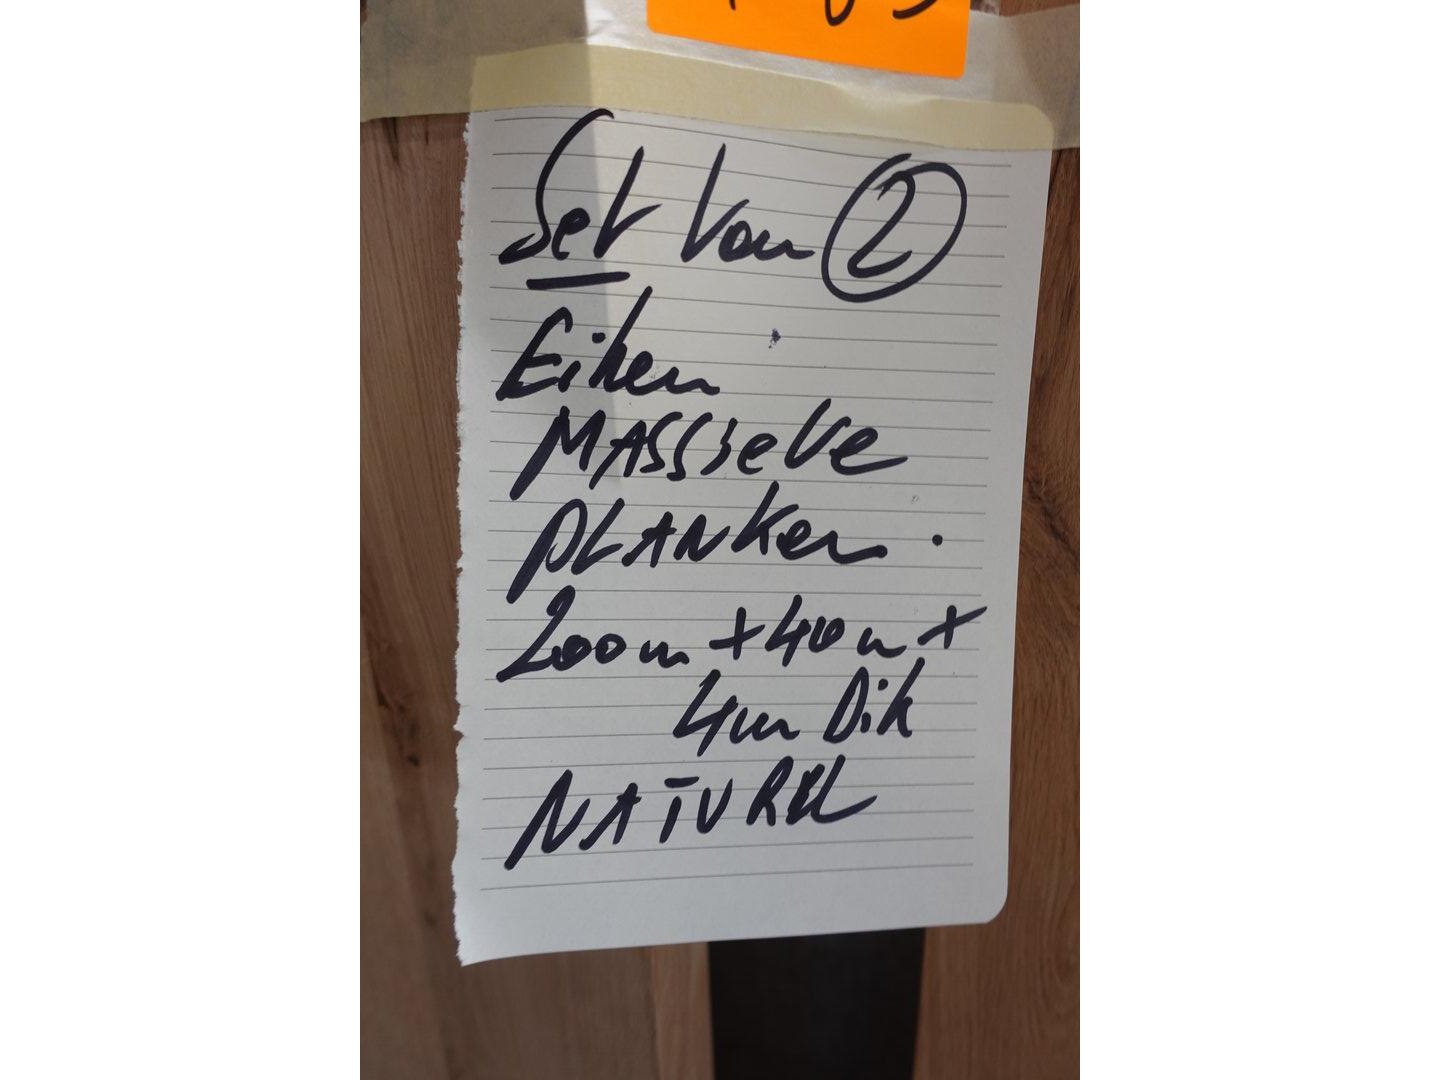 Set van 2
Eiken
MASSieve
PLANKen.
200cm x 40cm x
4cm Dik
NATUREL